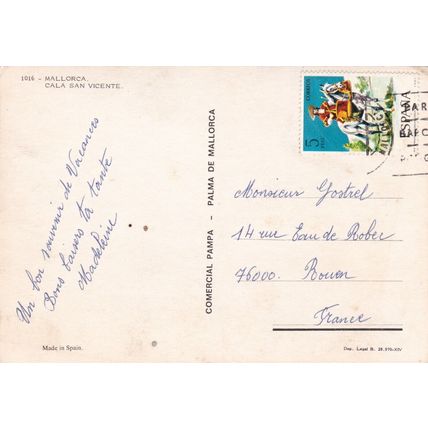 1016 - MALLORCA.
CALA SAN VICENTE.
Un bon souvenir de Vacances
Bons baisers ta tante
Madeleine
Made in Spain.
COMERCIAL PAMPA - PALMA DE MALLORCA
CORREOS
5
PTAS
ESPAÑA
MALLORCA
Monsieur Gostrel
14 rue Eau de Robec
76000. Rouen
France
Dep. Legal B. 28.970-XIV